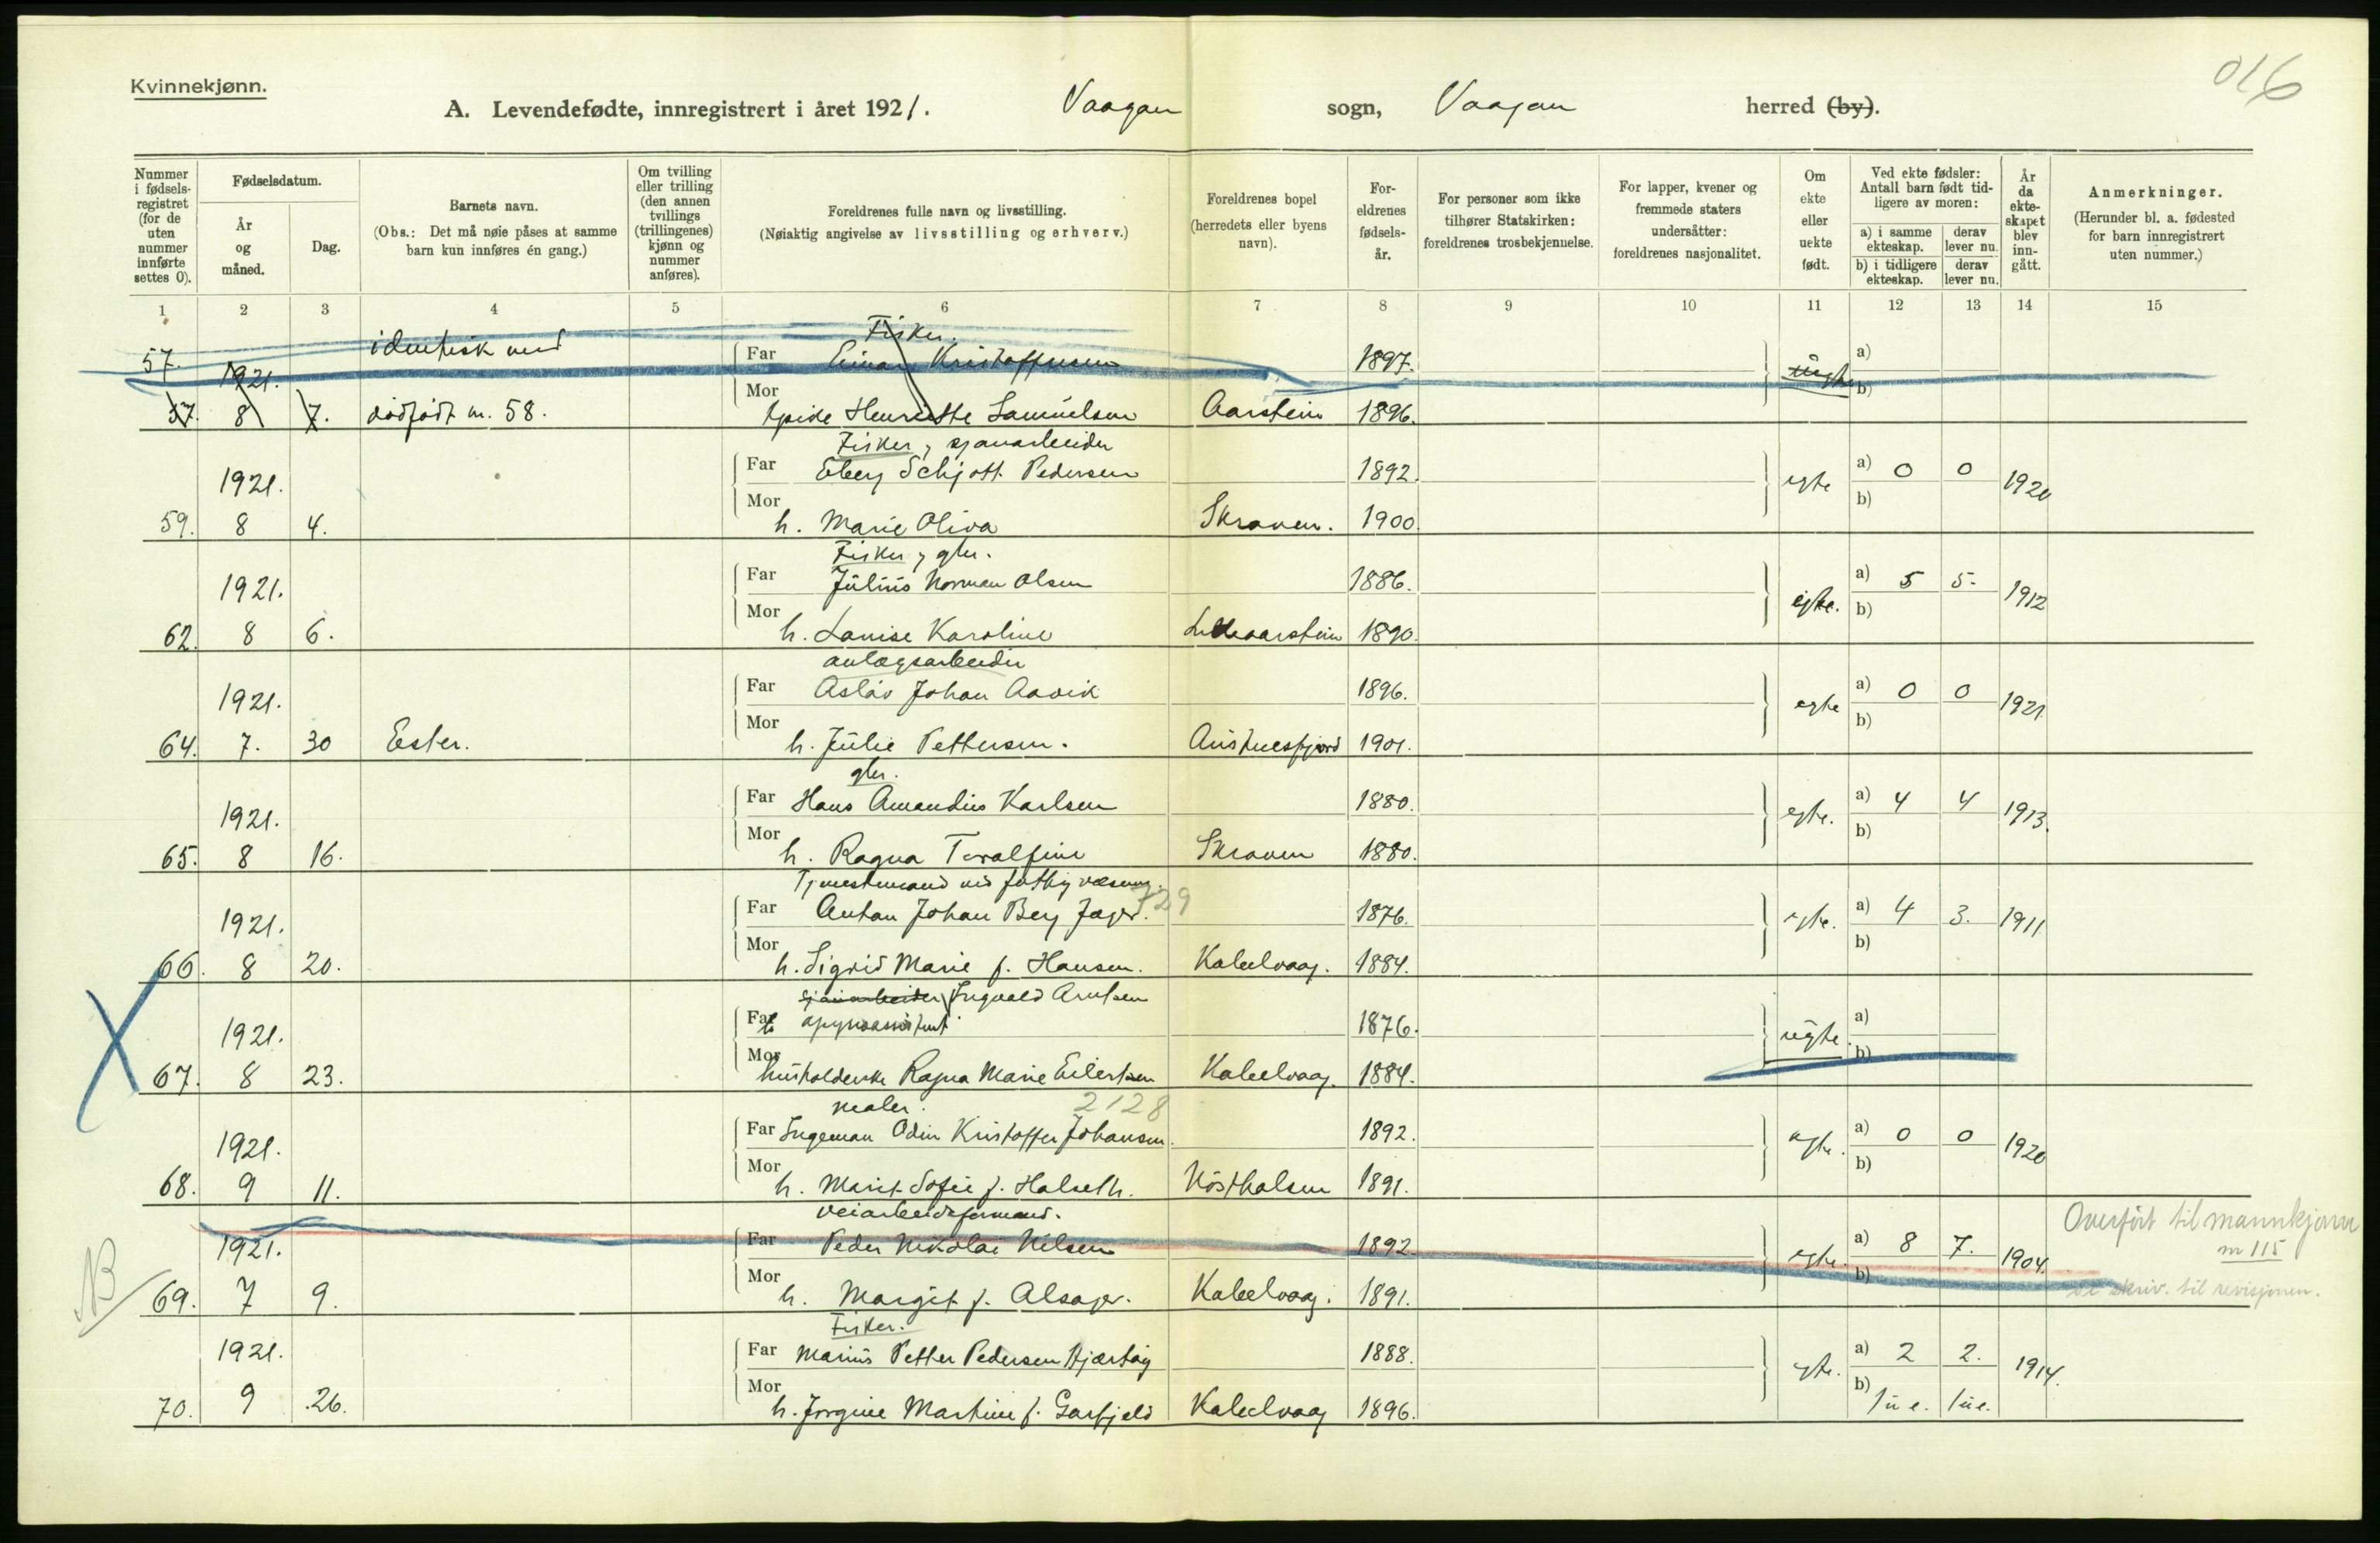 Kvinnekjønn.
016
A. Levendefødte, innregistrert i året 1921. Vaagan sogn, Vaagan herred (by).
Nummer i fødselsregistret (for de uten nummer innførte settes 0).
Fødselsdatum.
År og måned.
Dag.
Barnets navn.
(Obs.: Det må nøie påses at samme barn kun innføres én gang.)
Om tvilling eller trilling (den annen tvillings (trillingenes) kjønn og nummer anføres).
Foreldrenes fulle navn og livsstilling.
(Nøiaktig angivelse av livsstilling og erhverv.)
Foreldrenes bopel (herredets eller byens navn).
Foreldrenes fødselsår.
For personer som ikke tilhører Statskirken: foreldrenes trosbekjennelse.
For lapper, kvener og fremmede staters undersåtter: foreldrenes nasjonalitet.
Om ekte eller uekte født.
Ved ekte fødsler: Antall barn født tidligere av moren:
a) i samme ekteskap. derav lever nu.
b) i tidligere ekteskap. derav lever nu.
År da ekteskapet blev inngått.
Anmerkninger.
(Herunder bl. a. fødested for barn innregistrert uten nummer.)
1 2 3 4 5 6 7 8 9 10 11 12 13 14 15
Fisker.
57. 1921. identisk med Far Einar Kristoffersen 1897. uegte a)
b)
57. 8 7. dødfødt nr. 58. Mor Henriette Samuelsen Aarstein 1896.
Fisker, sjauarbeider
1921. Far Eberg Schjøtt Pedersen 1892. egte a) 0 0 1920
b)
59. 8 4. Mor h. Marie Oliva Skraaven. 1900.
Fisker, gbr.
1921. Far Julius Norman Olsen 1886. egte. a) 5 5. 1912
b)
62. 8 6. Mor h. Lauise Karoline Lilleaarstein 1890.
anlægsarbeider
1921. Far Aslav Johan Aavik 1896. egte a) 0 0 1921
b)
64. 7. 30 Ester. Mor h. Julie Pettersen. Austnesfjord 1901.
gbr.
1921. Far Hans Amandus Karlsen 1880. egte. a) 4 4 1913.
b)
65. 8 16. Mor h. Ragna Toralfine Skraaven 1880.
Tjenestemand ved fattigvæsenet. 729
1921. Far Anton Johan Berg Jæger. 1876. egte. a) 4 3. 1911
b)
66. 8 20. Mor h. Sigrid Marie f. Hansen. Kabelvaag. 1884.
sjauarbeider Ingvald Arntsen
1921. Far opsynsassistent 1876. uegte. a)
b)
67. 8 23. Mor husholderske Ragna Marie Eilertsen Kabelvaag. 1884.
maler. 2128
1921. Far Ingeman Odin Kristoffer Johansen. 1892. egte. a) 0 0 1920
b)
68. 9 11. Mor h. Marit Sofie f. Halseth. Nøstholmen 1891.
Veiarbeidsformand. Overført til mannkjønn
1921. Far Peder Nikolai Nilsen 1892 egte. a) 8 7. 1904. nr 115
b)
NB 69. 7 9. Mor h. Margit f. Alsager. Kabelvaag. 1891. skriv. til revisjonen.
Fisker.
1921. Far Marius Petter Pedersen Hjertøy 1888. egte. a) 2 2. 1914.
b) 1 u e. 1 u e.
70. 9 26. Mor h. Jorgine Martine f. Garfjeld Kabelvaag 1896.